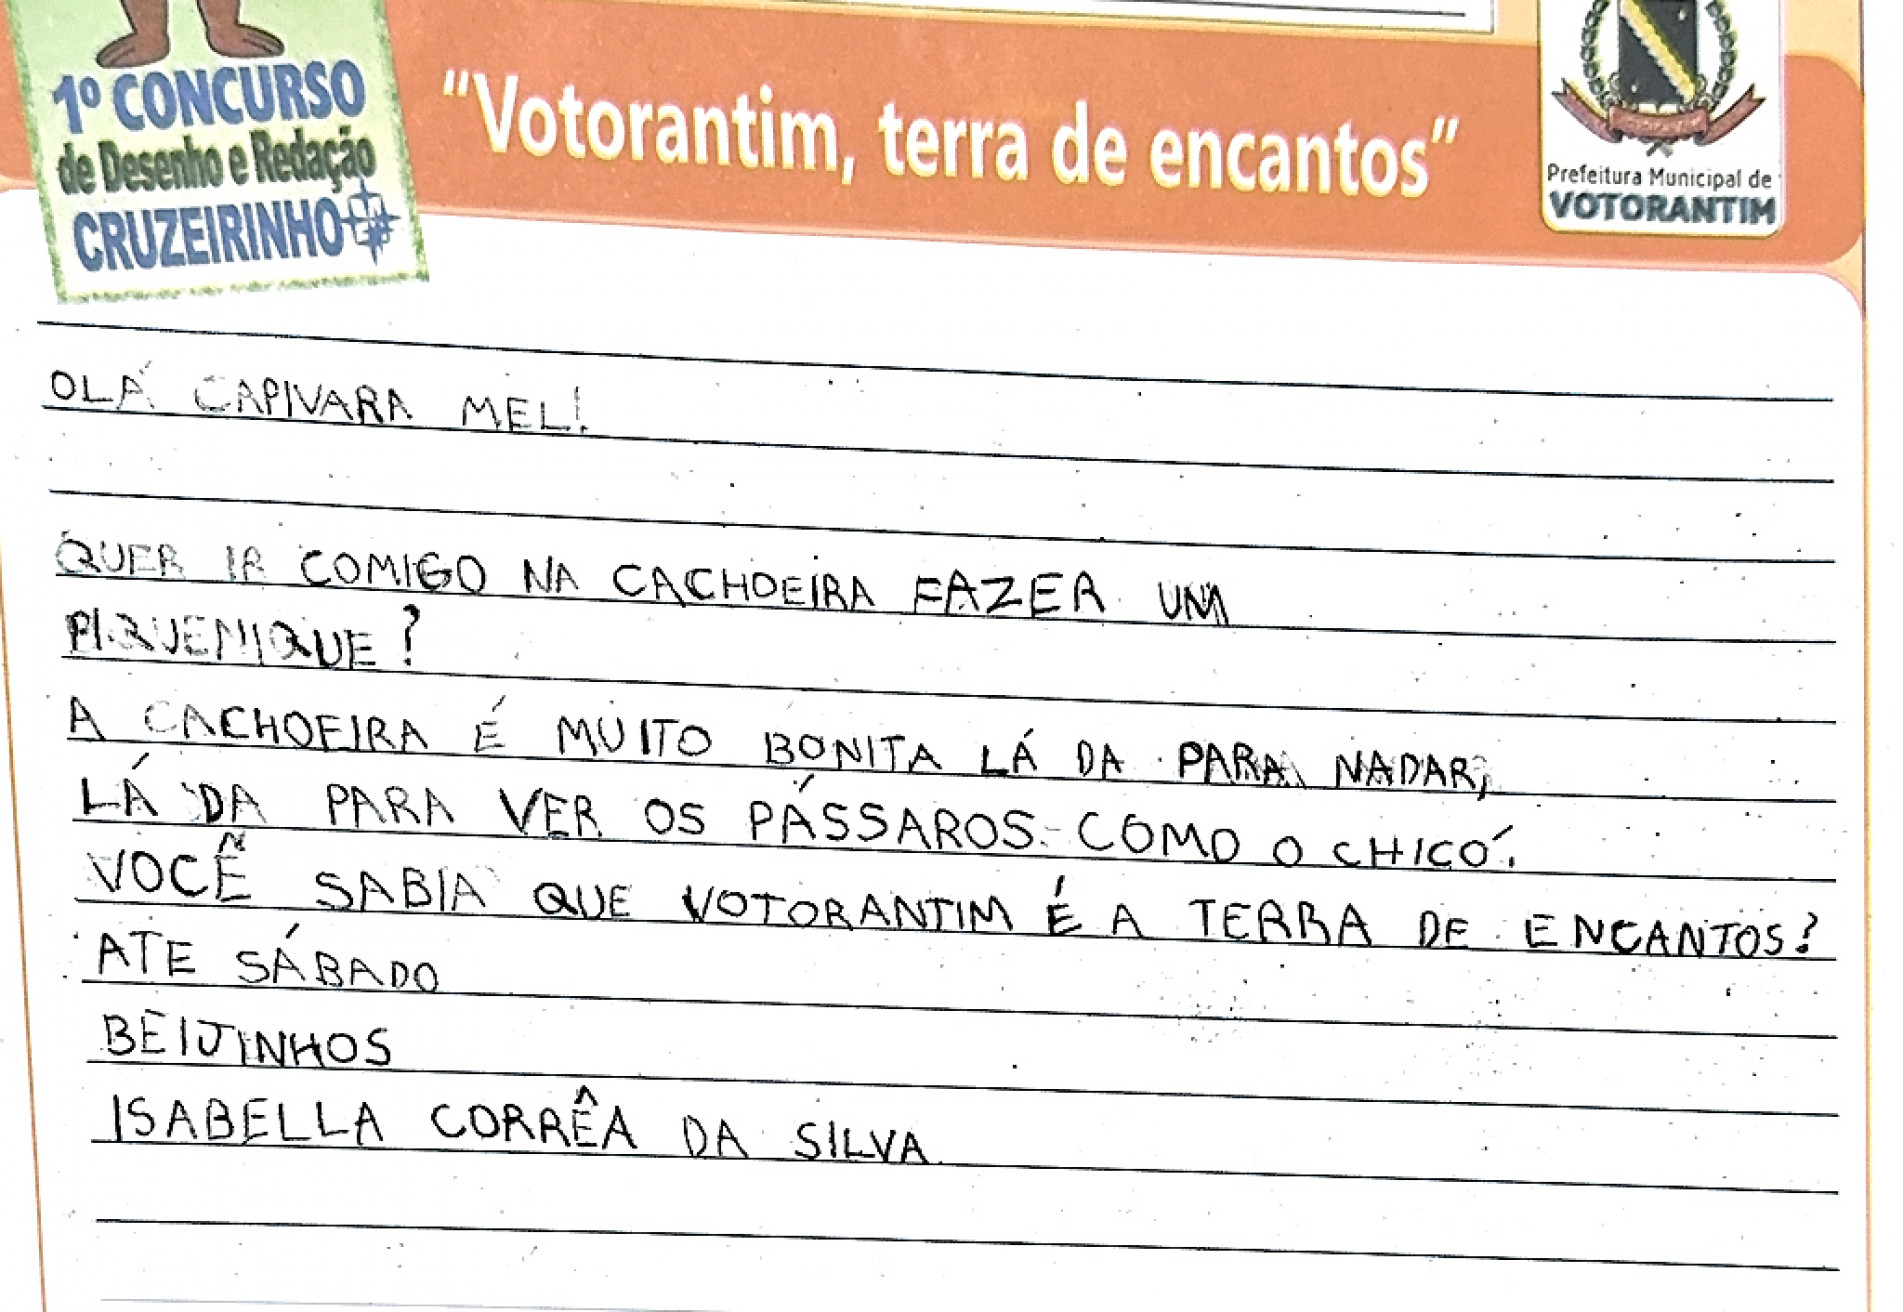 1º CONCURSO
de Desenho e Redação
CRUZEIRINHO
"Votorantim, terra de encantos"
Prefeitura Municipal de
VOTORANTIM
OLÁ CAPIVARA MEL!
QUER IR COMIGO NA CACHOEIRA FAZER UM
PIQUENIQUE?
A CACHOEIRA É MUITO BONITA LÁ DA PARA NADAR,
LÁ DA PARA VER OS PÁSSAROS COMO O CHICÓ.
VOCÊ SABIA QUE VOTORANTIM É A TERRA DE ENCANTOS?
ATE SÁBADO
BEIJINHOS
ISABELLA CORRÊA DA SILVA